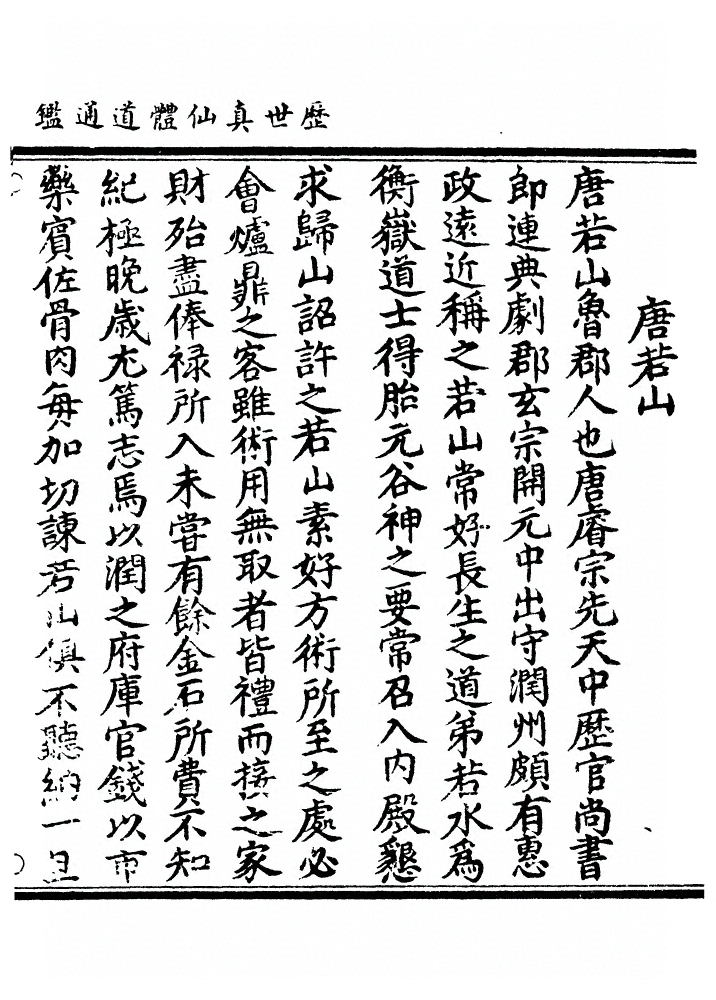 歷世真仙體道通鑑
唐若山
唐若山魯郡人也唐睿宗先天中歷官尚書
郎連典劇郡玄宗開元中出守潤州頗有惠
政遠近稱之若山常好長生之道弟若水為
衡嶽道士得胎元谷神之要常召入内殿懇
求歸山詔許之若山素好方術所至之處必
會爐鼎之客雖術用無取者皆禮而接之家
財殆盡俸禄所入未嘗有餘金石所費不知
紀極晚歲尤篤志焉以潤之府庫官錢以市
藥賓佐骨肉每加切諫若山俱不聽納一旦